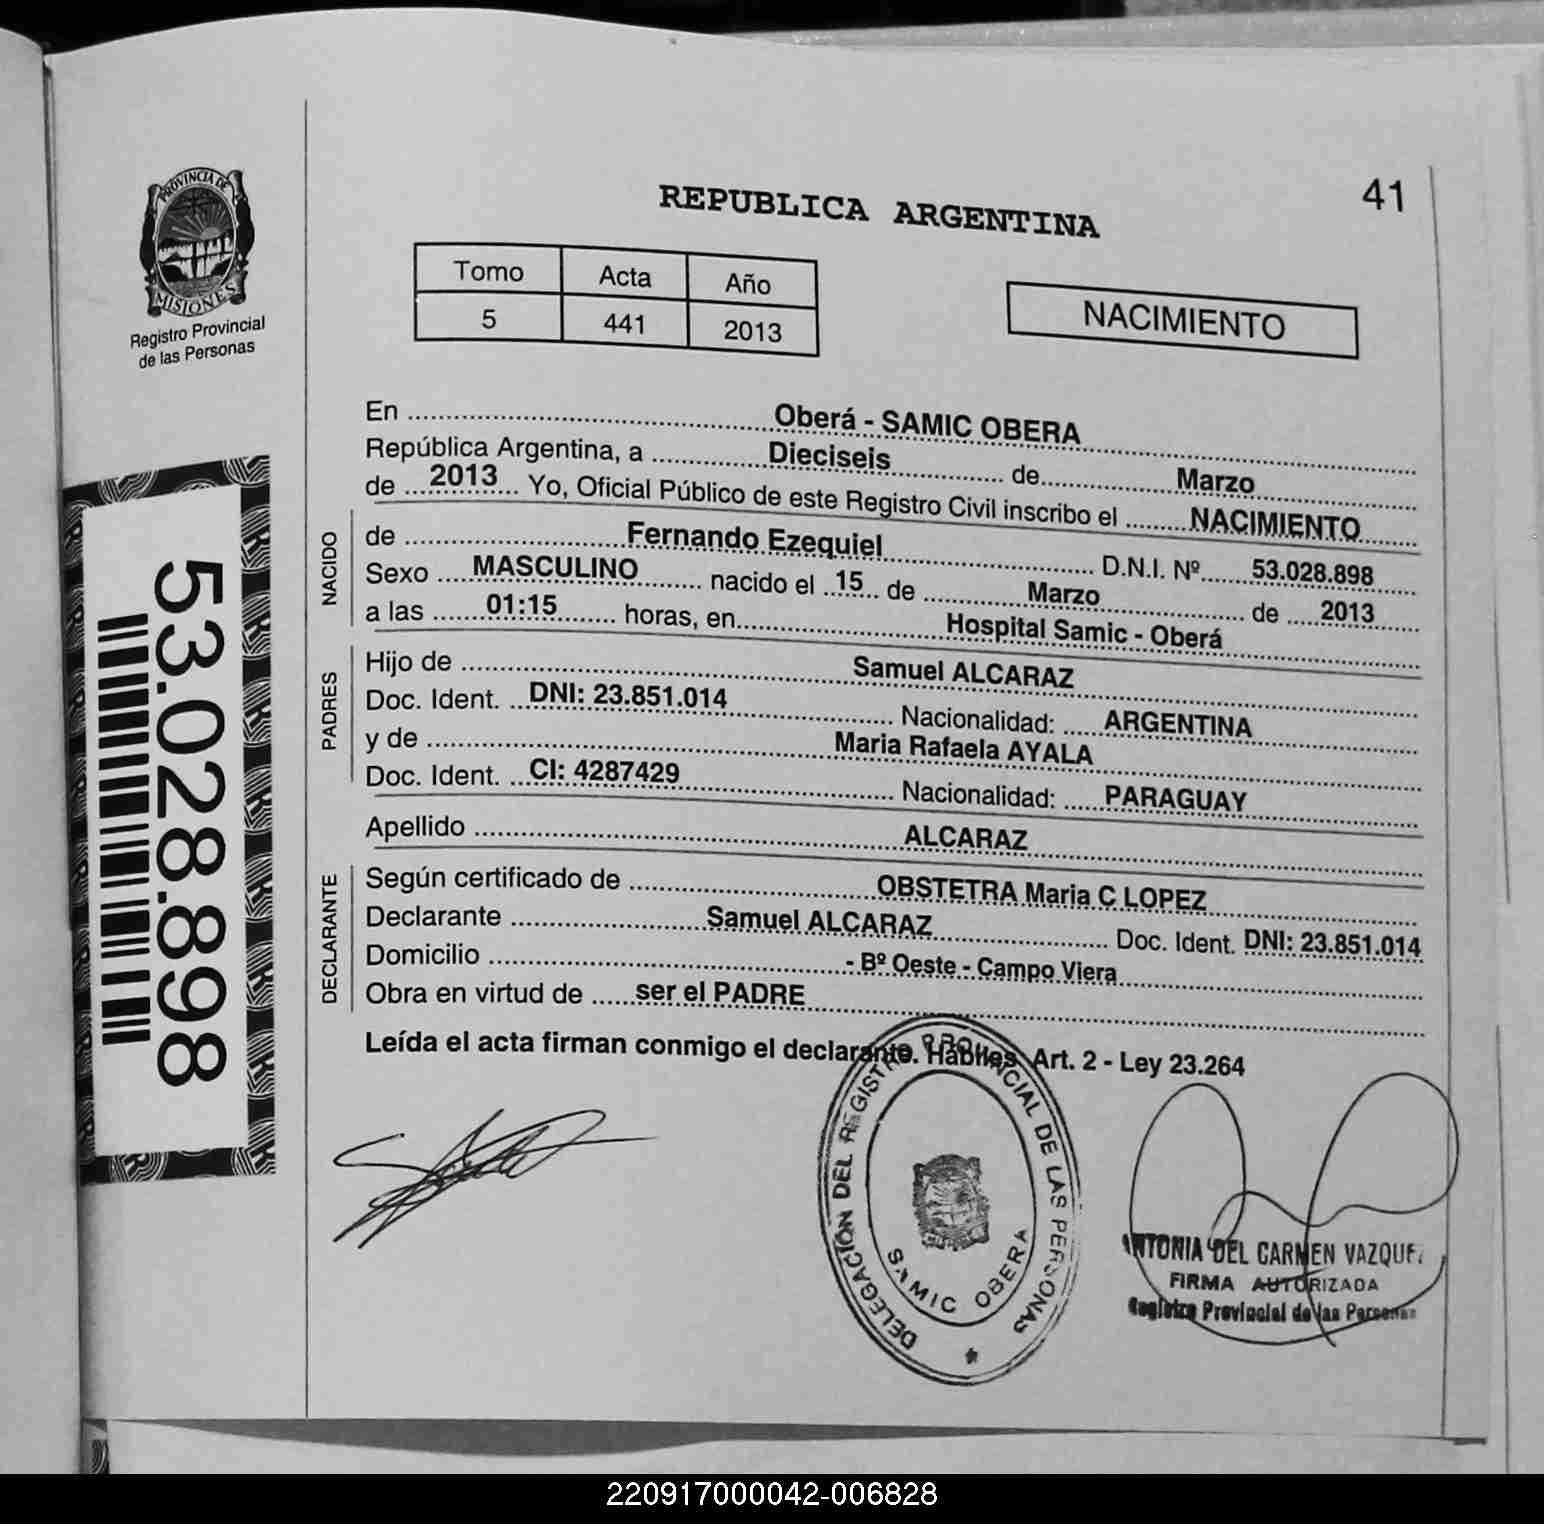 PROVINCIA DE
MISIONES
Registro Provincial
de las Personas
41
REPUBLICA ARGENTINA
Tomo Acta Año
5 441 2013
NACIMIENTO
53.028.898
En Oberá - SAMIC OBERA
República Argentina, a Dieciseis de Marzo
de 2013 Yo, Oficial Público de este Registro Civil inscribo el NACIMIENTO
NACIDO
de Fernando Ezequiel D.N.I. Nº 53.028.898
Sexo MASCULINO nacido el 15 de Marzo de 2013
a las 01:15 horas, en Hospital Samic - Oberá
PADRES
Hijo de Samuel ALCARAZ
Doc. Ident. DNI: 23.851.014 Nacionalidad: ARGENTINA
y de Maria Rafaela AYALA
Doc. Ident. CI: 4287429 Nacionalidad: PARAGUAY
Apellido ALCARAZ
DECLARANTE
Según certificado de OBSTETRA Maria C LOPEZ
Declarante Samuel ALCARAZ Doc. Ident. DNI: 23.851.014
Domicilio - Bº Oeste - Campo Viera
Obra en virtud de ser el PADRE
Leída el acta firman conmigo el declarante. Hábiles. Art. 2 - Ley 23.264
DELEGACIÓN DEL REGISTRO PROVINCIAL DE LAS PERSONAS
SAMIC OBERA
ANTONIA DEL CARMEN VAZQUEZ
FIRMA AUTORIZADA
Registro Provincial de las Personas
220917000042-006828